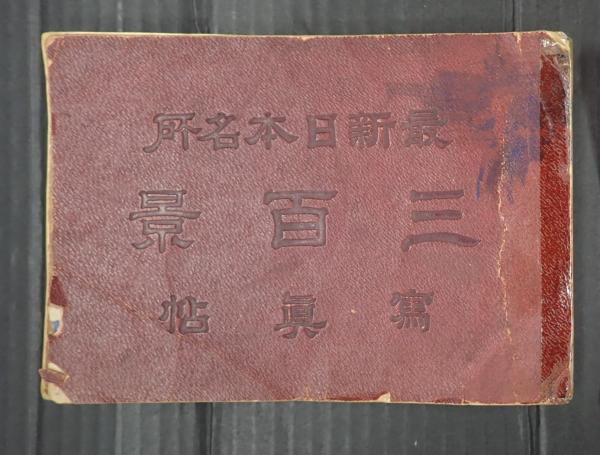 最新日本名所
三百景
寫眞帖